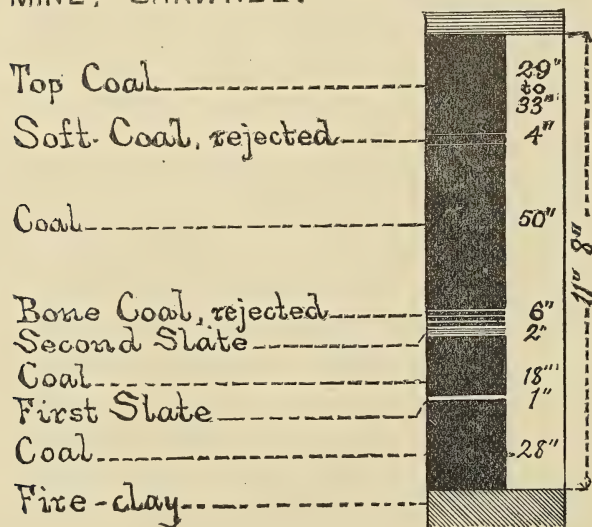 MINE, SHAWNEE.
Top Coal 29" to 33"
Soft-Coal, rejected 4"
Coal 50"
Bone Coal, rejected 6"
Second Slate 2"
Coal 18"
First Slate 1"
Coal 28"
Fire-clay
11" 8"